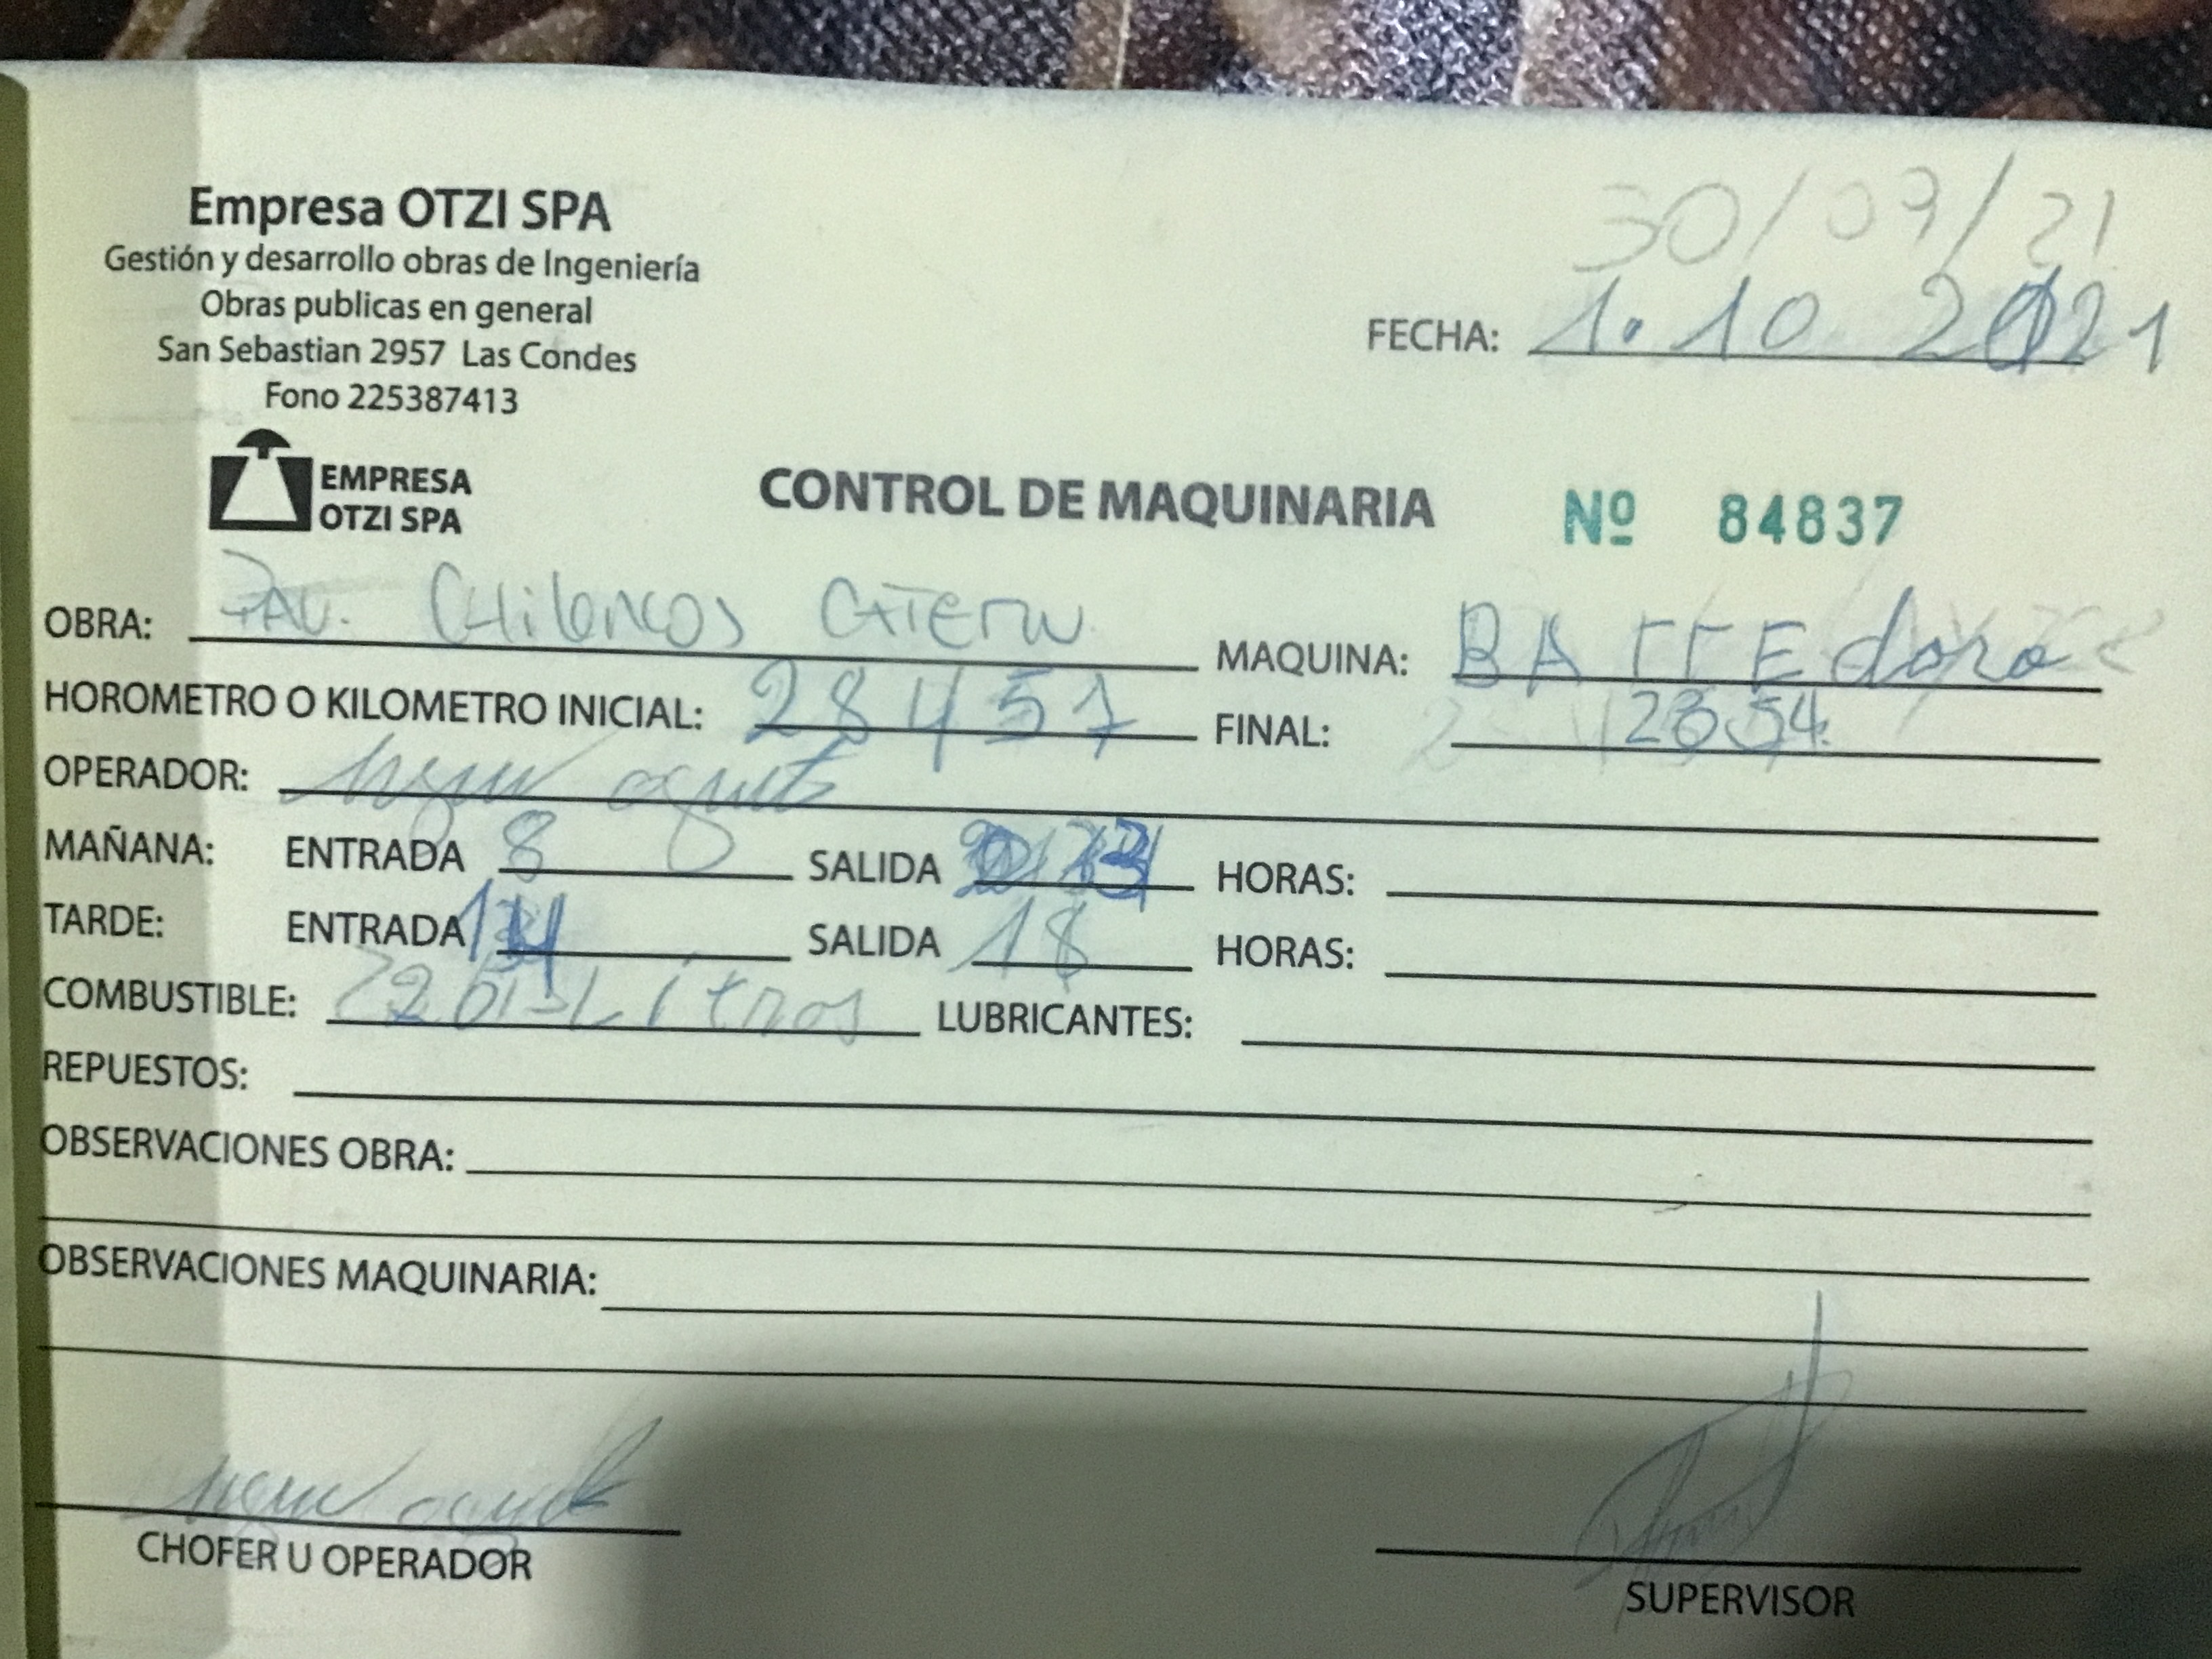 Empresa OTZI SPA
Gestión y desarrollo obras de Ingeniería
Obras publicas en general
San Sebastian 2957 Las Condes
Fono 225387413
30/09/21
FECHA: 1. 10 2021
EMPRESA
OTZI SPA
CONTROL DE MAQUINARIA Nº 84837
OBRA: PAV.
MAQUINA:
HOROMETRO O KILOMETRO INICIAL: 28457 FINAL:
OPERADOR:
MAÑANA: ENTRADA 8 SALIDA HORAS:
TARDE: ENTRADA 14 SALIDA 18 HORAS:
COMBUSTIBLE: Litros LUBRICANTES:
REPUESTOS:
OBSERVACIONES OBRA:
OBSERVACIONES MAQUINARIA:
CHOFER U OPERADOR
SUPERVISOR